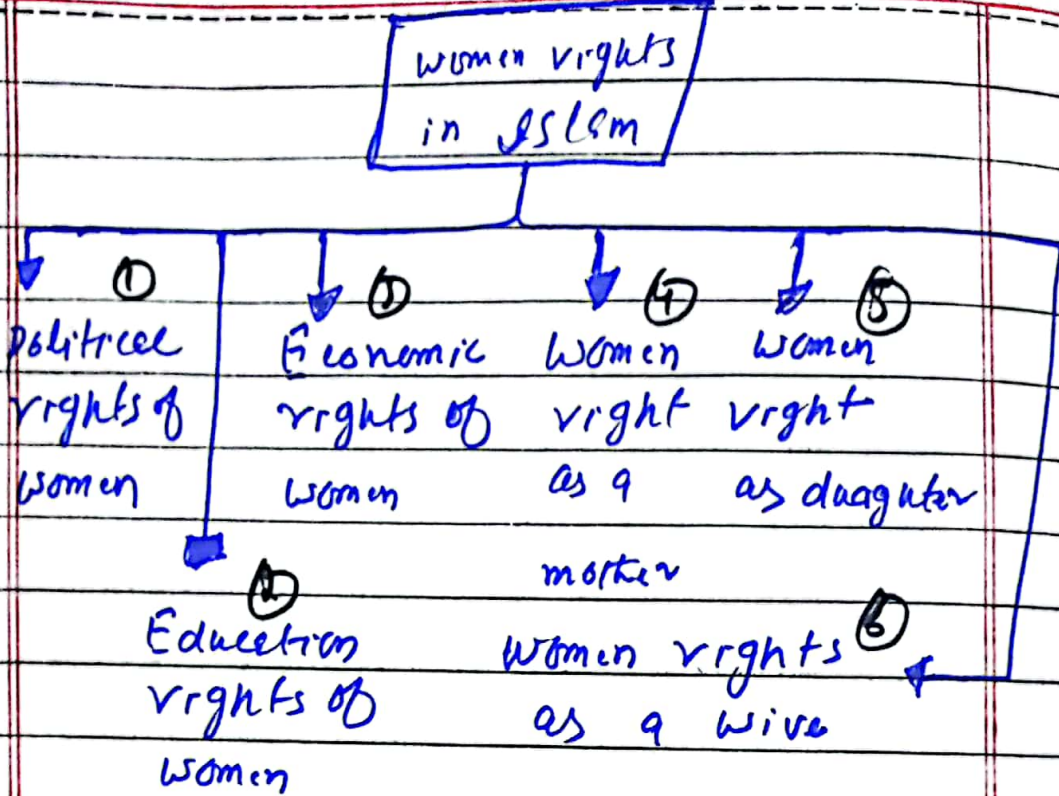 women rights
in Islam
①
Political
rights of
women
②
Education
rights of
women
③
Economic
rights of
women
④
women
right
as a
mother
⑤
women
right
as duaguter
⑥
women rights
as a wive